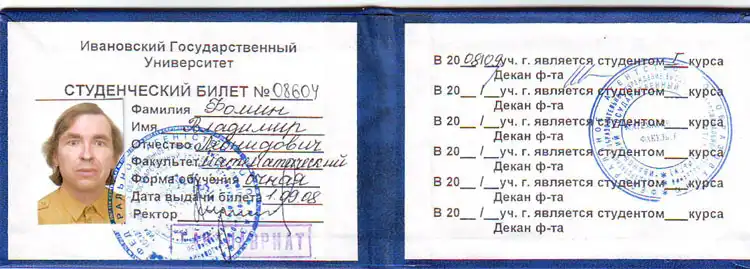 Ивановский Государственный
Университет
СТУДЕНЧЕСКИЙ БИЛЕТ № 08604
Фамилия Фомин
Имя Владимир
Отчество Леонидович
Факультет математический
Форма обучения очная
Дата выдачи билета 1.09.08
Ректор
В 20 08/09 уч. г. является студентом I курса
Декан ф-та
В 20__ /__уч. г. является студентом___курса
Декан ф-та
В 20__ /__уч. г. является студентом___курса
Декан ф-та
В 20__ /__уч. г. является студентом___курса
Декан ф-та
В 20__ /__уч. г. является студентом___курса
Декан ф-та
В 20__ /__уч. г. является студентом___курса
Декан ф-та